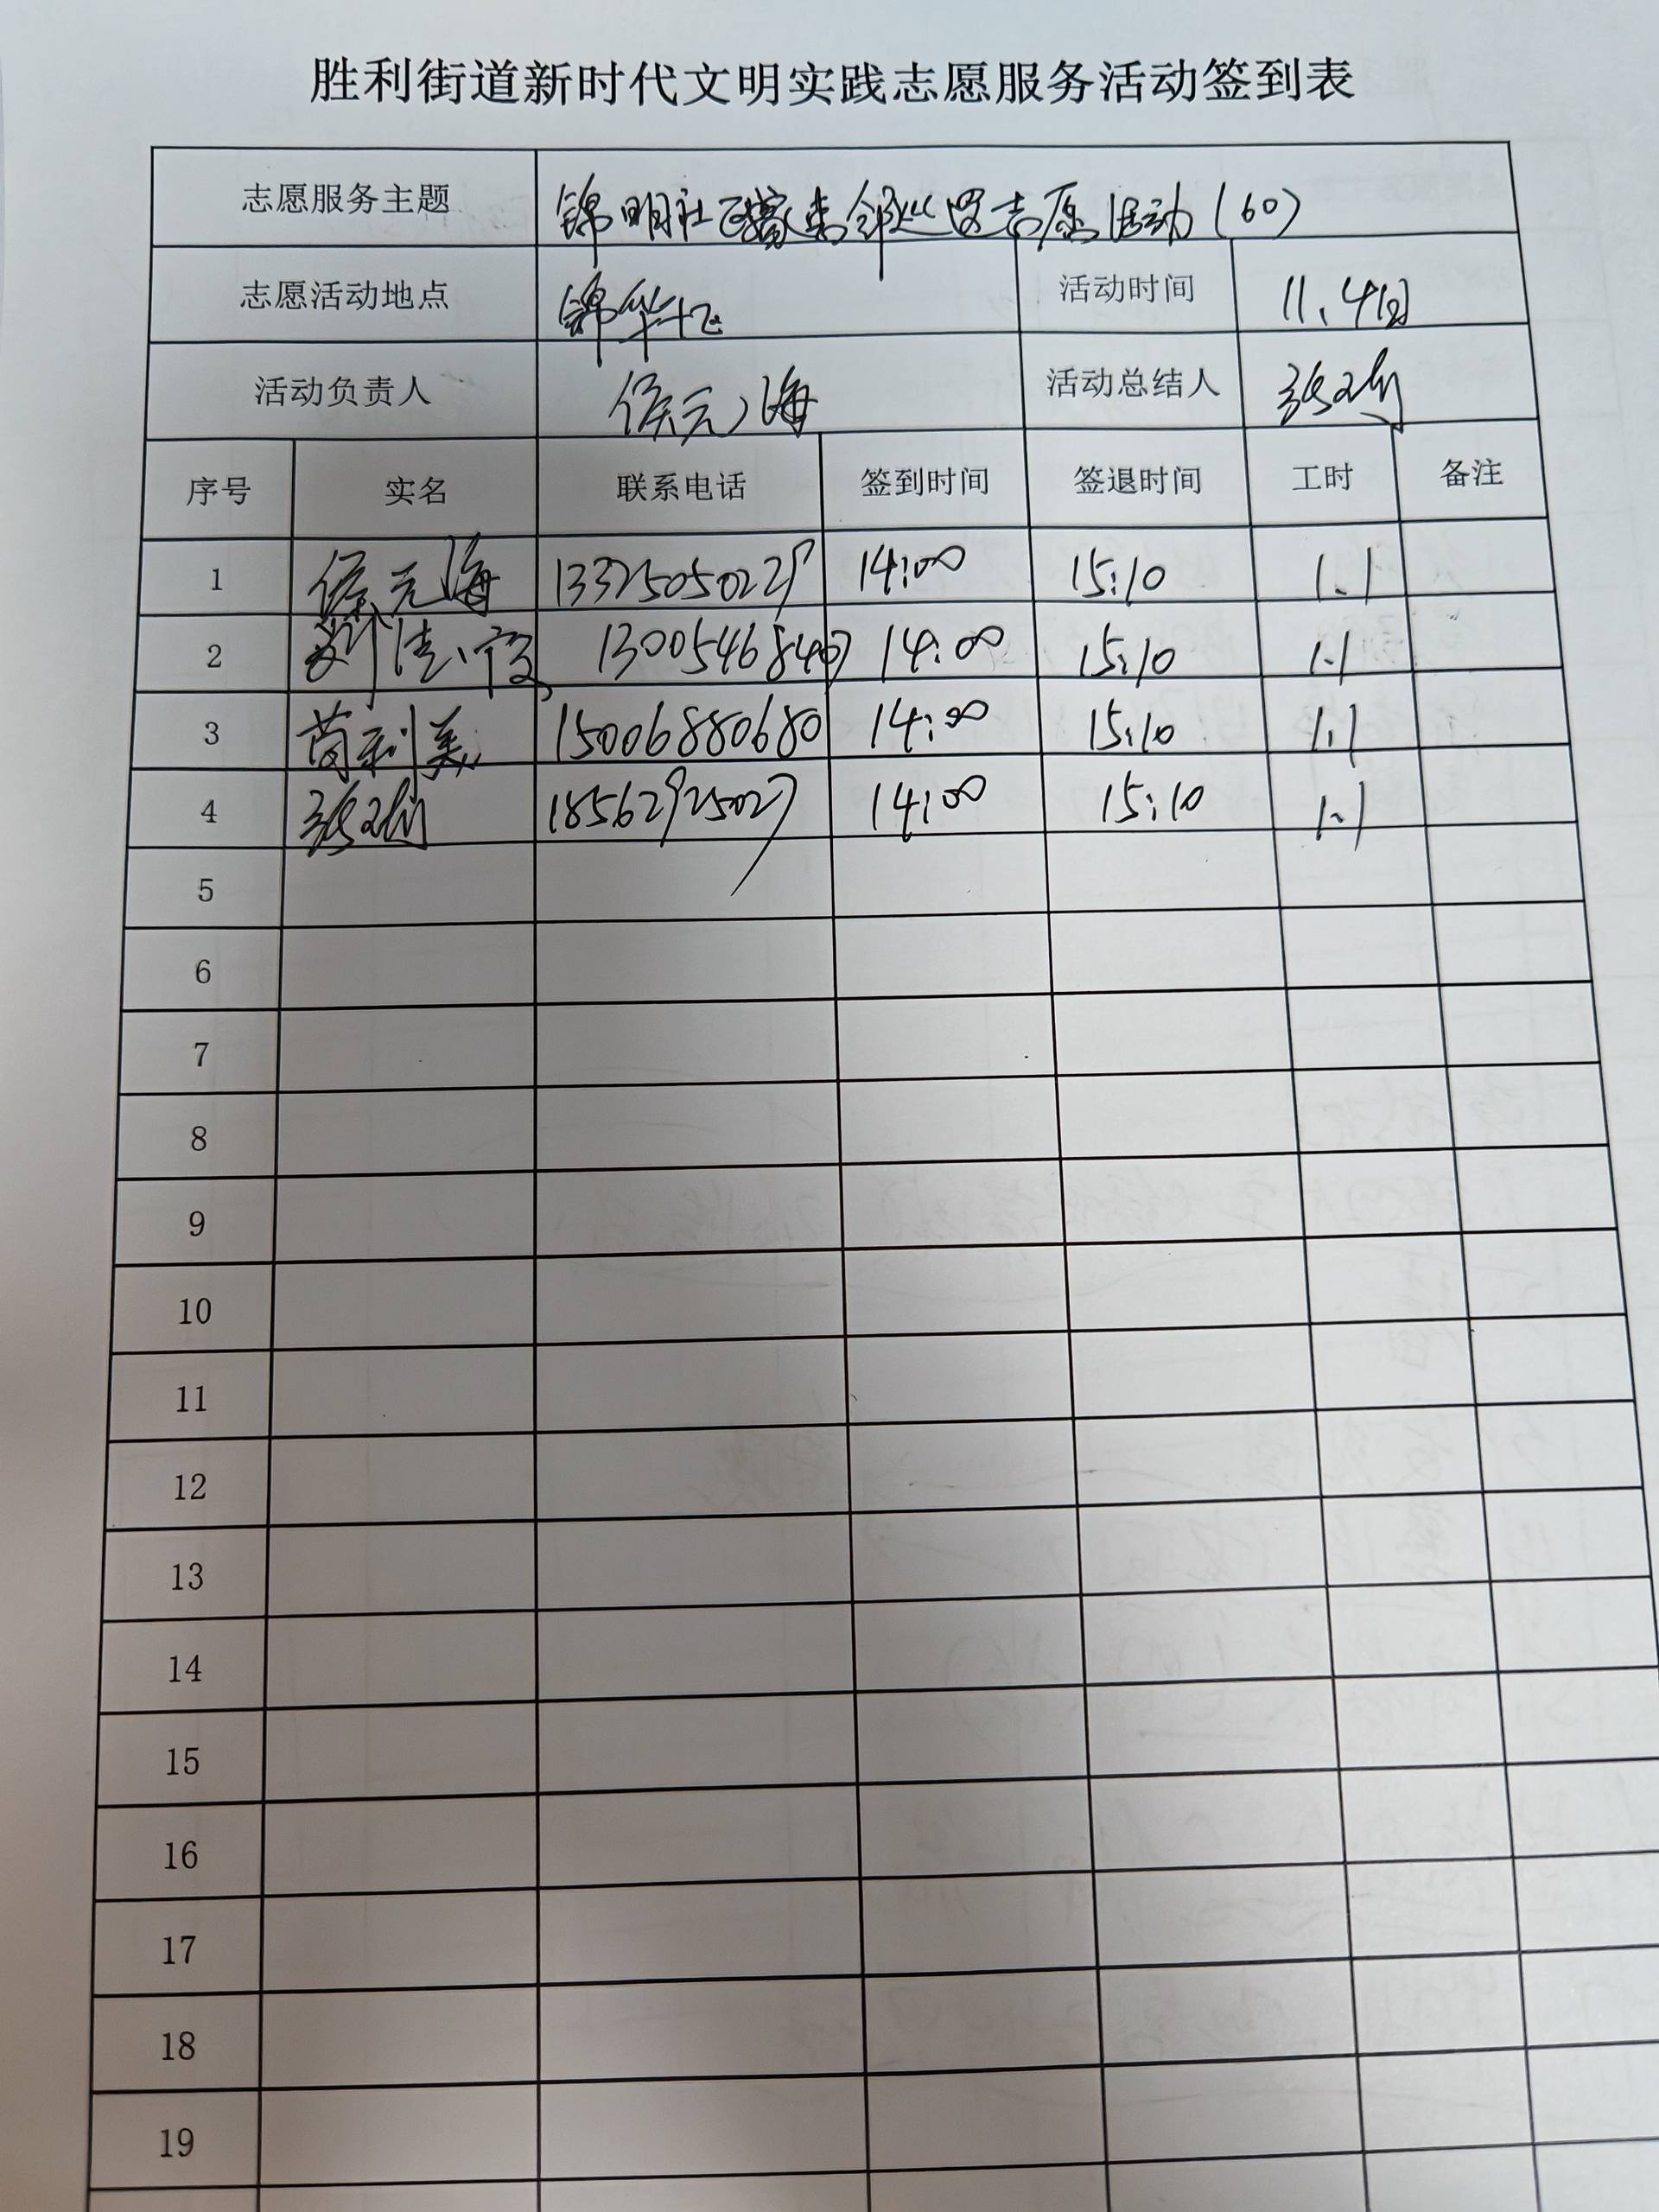 胜利街道新时代文明实践志愿服务活动签到表
志愿服务主题 锦明社区 邻 志愿活动(60)
志愿活动地点 锦华 活动时间 11.4日
活动负责人 侯元海 活动总结人
序号 实名 联系电话 签到时间 签退时间 工时 备注
1 侯元海 14:00 15:10 1.1
2 14:00 15:10 1.1
3 苘利美 15006880680 14:00 15:10 1.1
4 18562925027 14:00 15:10 1.1
5
6
7
8
9
10
11
12
13
14
15
16
17
18
19